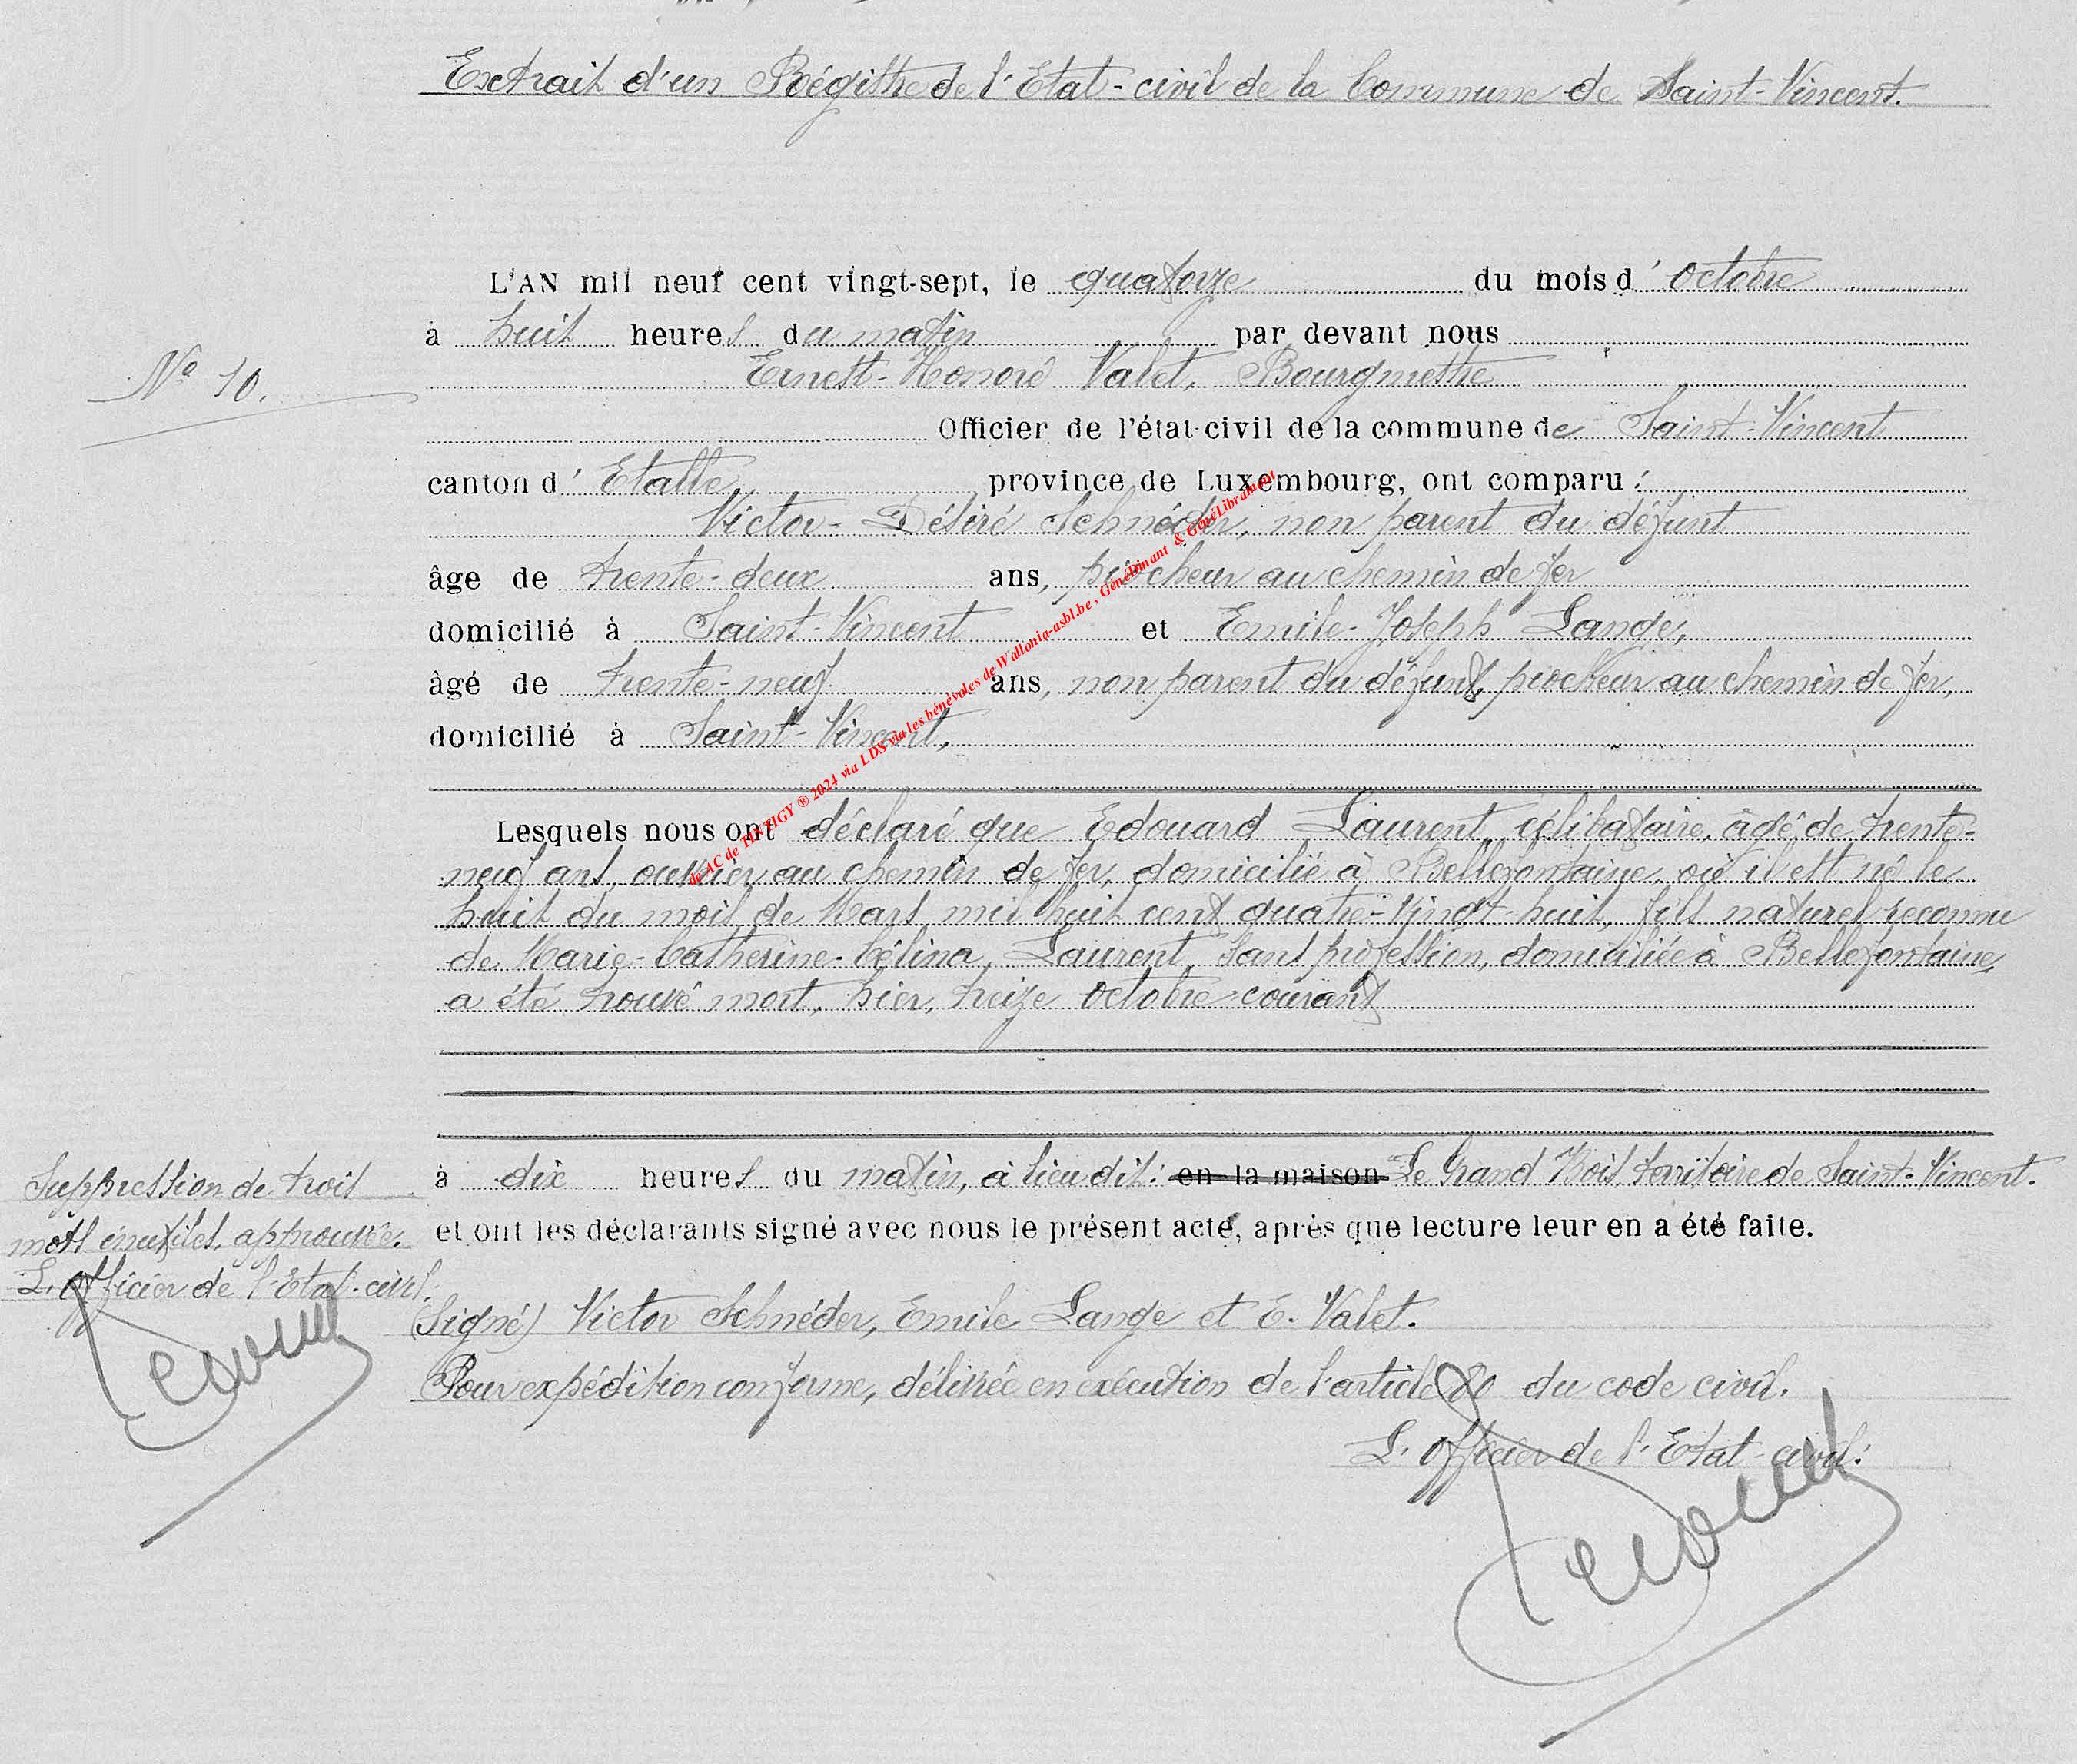 Extrait d'un Régistre de l'Etat-civil de la Commune de Saint-Vincent.
L'AN mil neuf cent vingt-sept, le quatorze du mois d'Octobre
à huit heures du matin par devant nous
N° 10.
Ernest-Honoré Valet, Bourgmestre
Officier de l'état-civil de la commune de Saint-Vincent
canton d'Etalle, province de Luxembourg, ont comparu :
Victor-Désiré Schnéder, non parent du défunt
âge de trente-deux ans, piocheur au chemin de fer
domicilié à Saint-Vincent et Emile-Joseph Lange,
âgé de trente-neuf ans, non parent du défunt, piocheur au chemin de fer,
domicilié à Saint-Vincent,
de AC de TINTIGY ® 2024 via LDS via les bénévoles de Wallonia-asbl.be , GénéDinant & GénéLibramont
Lesquels nous ont déclaré que Edouard Laurent, célibataire, âgé de trente-
neuf ans, ouvrier au chemin de fer, domicilié à Bellefontaine, où il est né le
huit du mois de Mars mil huit cent quatre-vingt-huit, fils naturel reconnu
de Marie-Catherine-Célina Laurent, sans profession, domiciliée à Bellefontaine,
a été trouvé mort, hier, treize Octobre courant
à dix heures du matin, à lieu dit : en la maison "Le Grand Bois, territoire de Saint-Vincent.
et ont les déclarants signé avec nous le présent acte, après que lecture leur en a été faite.
Suppression de trois
mots inutiles, approuvée.
L'Officier de l'Etat-civil.
(Signé) Victor Schnéder, Emile Lange et E. Valet.
Pour expédition conforme, délivrée en exécution de l'article 80 du code civil.
L'Officier de l'Etat-civil: